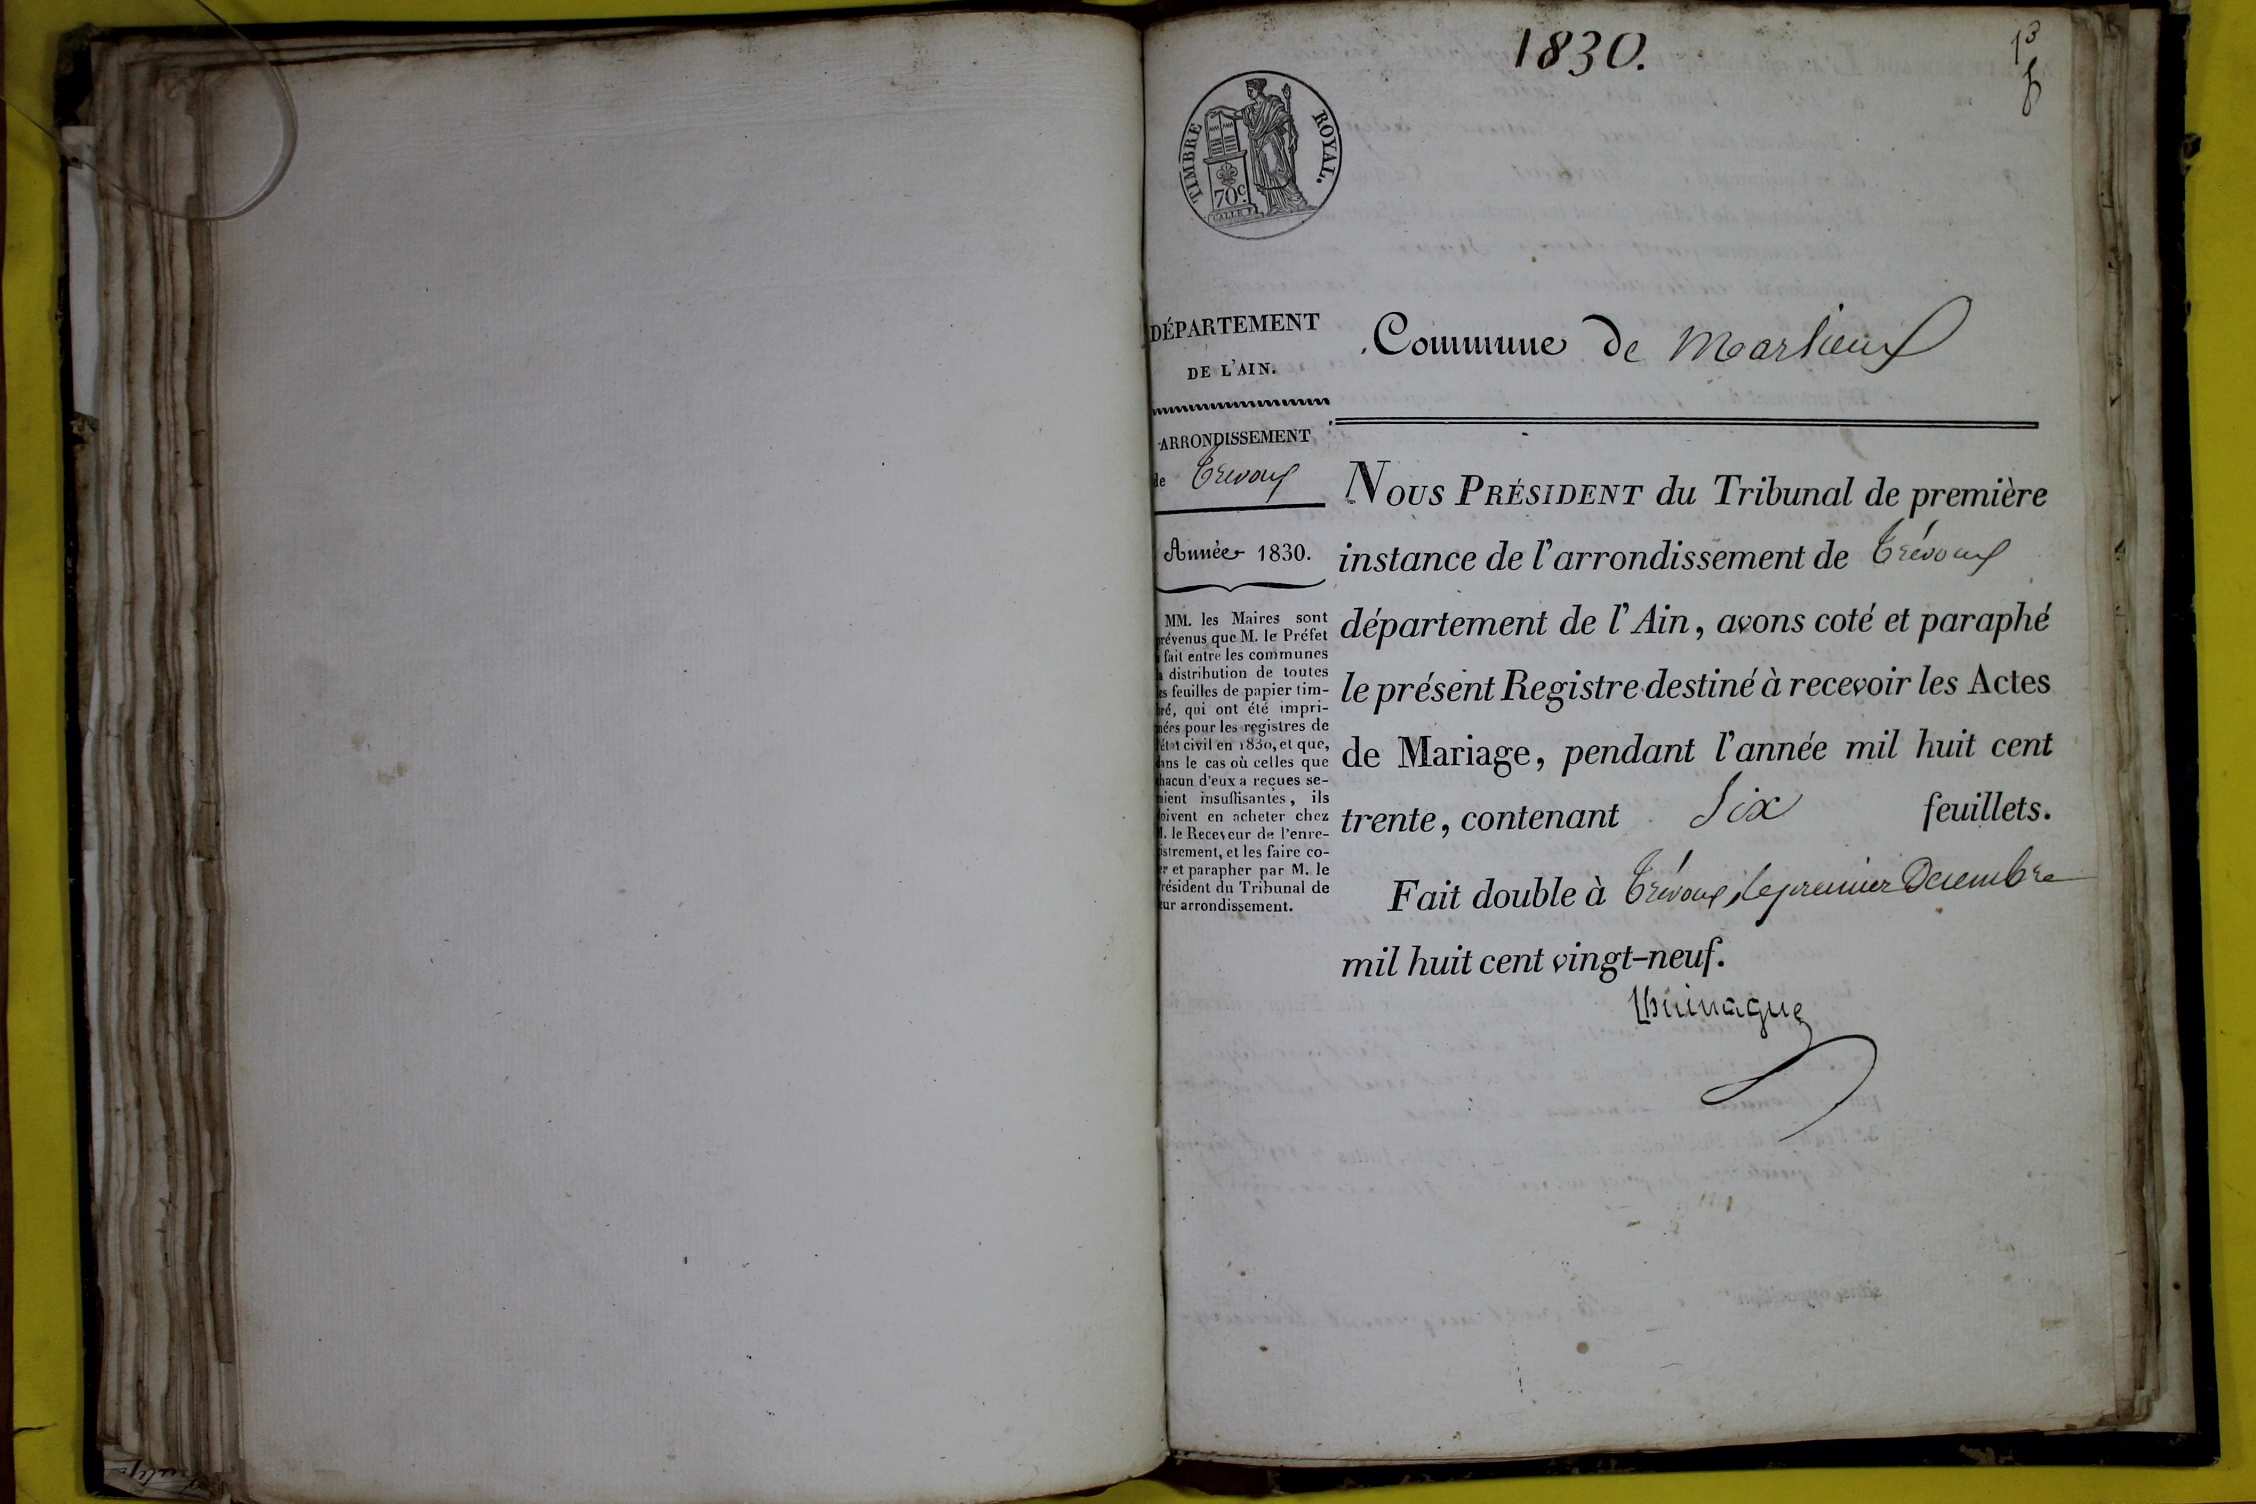 1830.
TIMBRE ROYAL.
70c.
DÉPARTEMENT
DE L'AIN.
ARRONDISSEMENT
de Trevoux
Année 1830.
MM. les Maires sont
prévenus que M. le Préfet
a fait entre les communes
la distribution de toutes
les feuilles de papier tim-
bré, qui ont été impri-
mées pour les registres de
l'état civil en 1830, et que,
dans le cas où celles que
chacun d'eux a reçues se-
raient insuffisantes, ils
doivent en acheter chez
M. le Receveur de l'enre-
gistrement, et les faire co-
ter et parapher par M. le
Président du Tribunal de
leur arrondissement.
Commune de Marlieux
NOUS PRÉSIDENT du Tribunal de première
instance de l'arrondissement de Trévoux
département de l'Ain, avons coté et paraphé
le présent Registre destiné à recevoir les Actes
de Mariage, pendant l'année mil huit cent
trente, contenant Six feuillets.
Fait double à Trévoux, le premier Decembre
mil huit cent vingt-neuf.